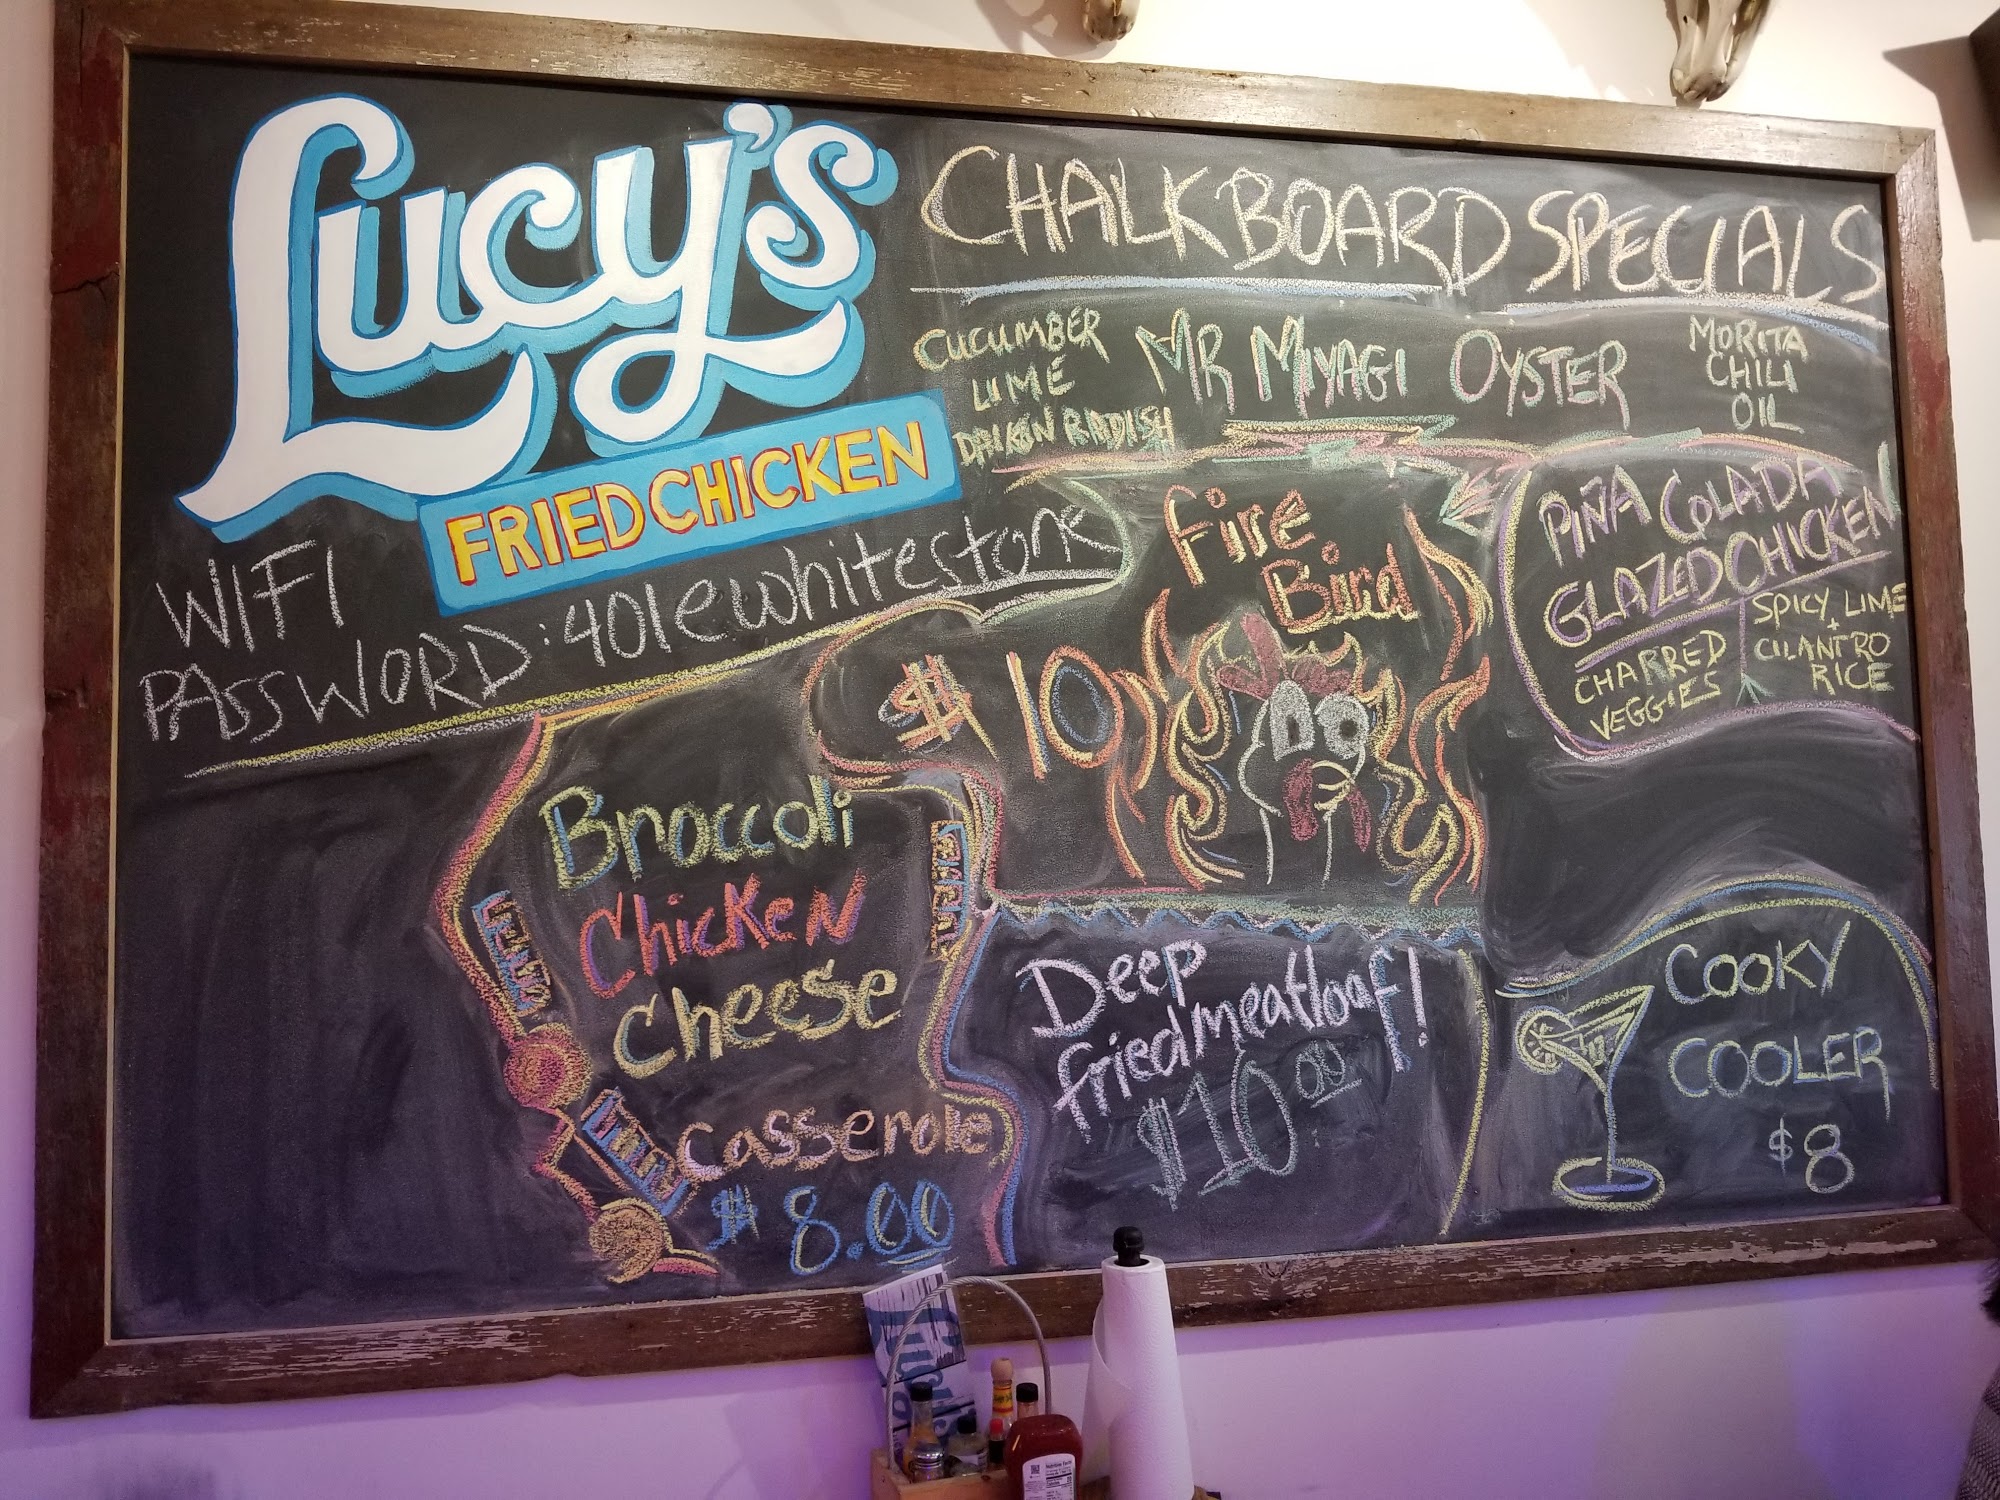 Lucy's
FRIED CHICKEN
WIFI
PASSWORD: 401ewhitestone
CHALKBOARD SPECIALS
CUCUMBER
LIME
DAIKON RADISH
MR MIYAGI OYSTER
MORITA
CHILI
OIL
Fire
Bird
$10
PIÑA COLADA
GLAZED CHICKEN
CHARRED
VEGGIES
SPICY LIME
+
CILANTRO
RICE
Broccoli
Chicken
Cheese
Casserole
$8.00
Deep
fried meatloaf!
$10.00
COOKY
COOLER
$8